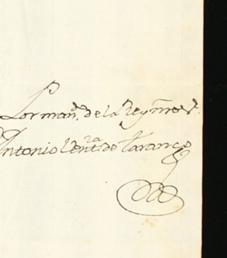 Por man.do de la Rey.na N.r S.r
Antonio Vent.ra de Taranco